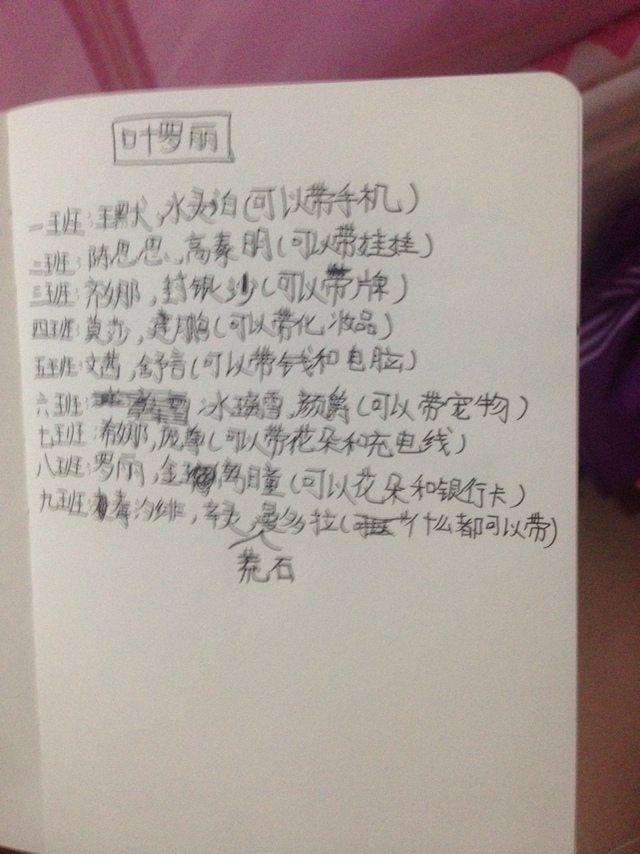 叶罗丽
一班:王默,水(可以带手机)
二班:陈思思、高泰明(可以带娃娃)
三班:齐娜,封银沙(可以带牌)
四班:莫莎,建鹏(可以带化妆品)
五班:文茜,舒言(可以带钱和电脑)
六班:冰璃雪,颜爵(可以带宠物)
七班:希娜,庞尊(可以带花朵和充电线)
八班:罗丽,金离瞳(可以花朵和银行卡)
九班:毒汐绯,辛灵,曼多拉(什么都可以带)
荒石